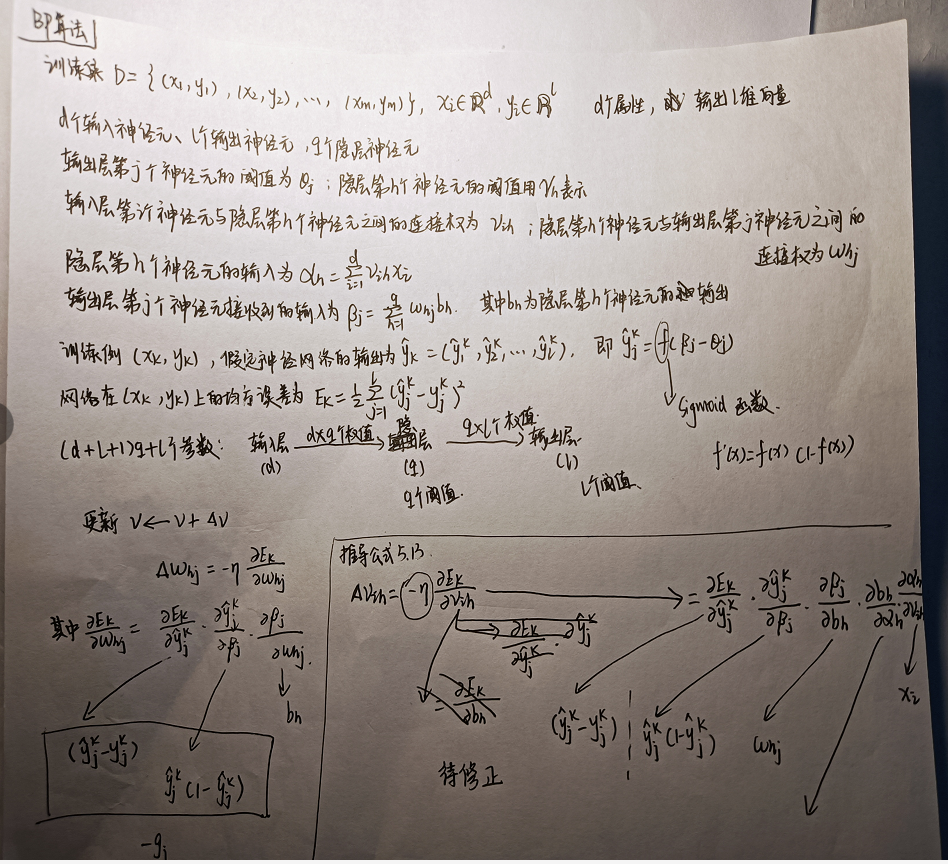 BP算法
训练集 D = { (x₁, y₁), (x₂, y₂), …, (xₘ, yₘ) }, xᵢ ∈ ℝᵈ, yᵢ ∈ ℝˡ d个属性, 输出l维向量
d个输入神经元、l个输出神经元, q个隐层神经元
输出层第j个神经元的阈值为 θj ; 隐层第h个神经元的阈值用 γh 表示
输入层第i个神经元与隐层第h个神经元之间的连接权为 vih ; 隐层第h个神经元与输出层第j神经元之间的
连接权为 whj
隐层第h个神经元的输入为 αh = Σ_{i=1}^{d} vih xi
输出层第j个神经元接收到的输入为 βj = Σ_{h=1}^{q} whj bh. 其中bh为隐层第h个神经元的输出
训练例 (xk, yk), 假定神经网络的输出为 ŷk = (ŷ₁ᵏ, ŷ₂ᵏ, …, ŷₗᵏ). 即 ŷjᵏ = f(βj − θj)
网络在 (xk, yk) 上的均方误差为 Ek = ½ Σ_{j=1}^{l} (ŷjᵏ − yjᵏ)²
Sigmoid 函数.
(d+l+1)q+l个参数: 输入层 (d) d×q个权值 → 隐层 (q) q×l个权值 → 输出层 (l)
q个阈值. l个阈值.
f'(x) = f(x) (1−f(x))
更新 v ← v + Δv
Δwhj = −η ∂Ek/∂whj
其中 ∂Ek/∂whj = ∂Ek/∂ŷjᵏ · ∂ŷjᵏ/∂βj · ∂βj/∂whj.
bh
(ŷjᵏ − yjᵏ)
ŷjᵏ (1 − ŷjᵏ)
−gj
推导公式5.13.
Δvih = −η ∂Ek/∂vih → = ∂Ek/∂ŷjᵏ · ∂ŷjᵏ/∂βj · ∂βj/∂bh · ∂bh/∂αh · ∂αh/∂vih
∂Ek/∂ŷjᵏ · ∂ŷjᵏ
= ∂Ek/∂bh
(ŷjᵏ − yjᵏ) ŷjᵏ (1 − ŷjᵏ) whj xi
待修正